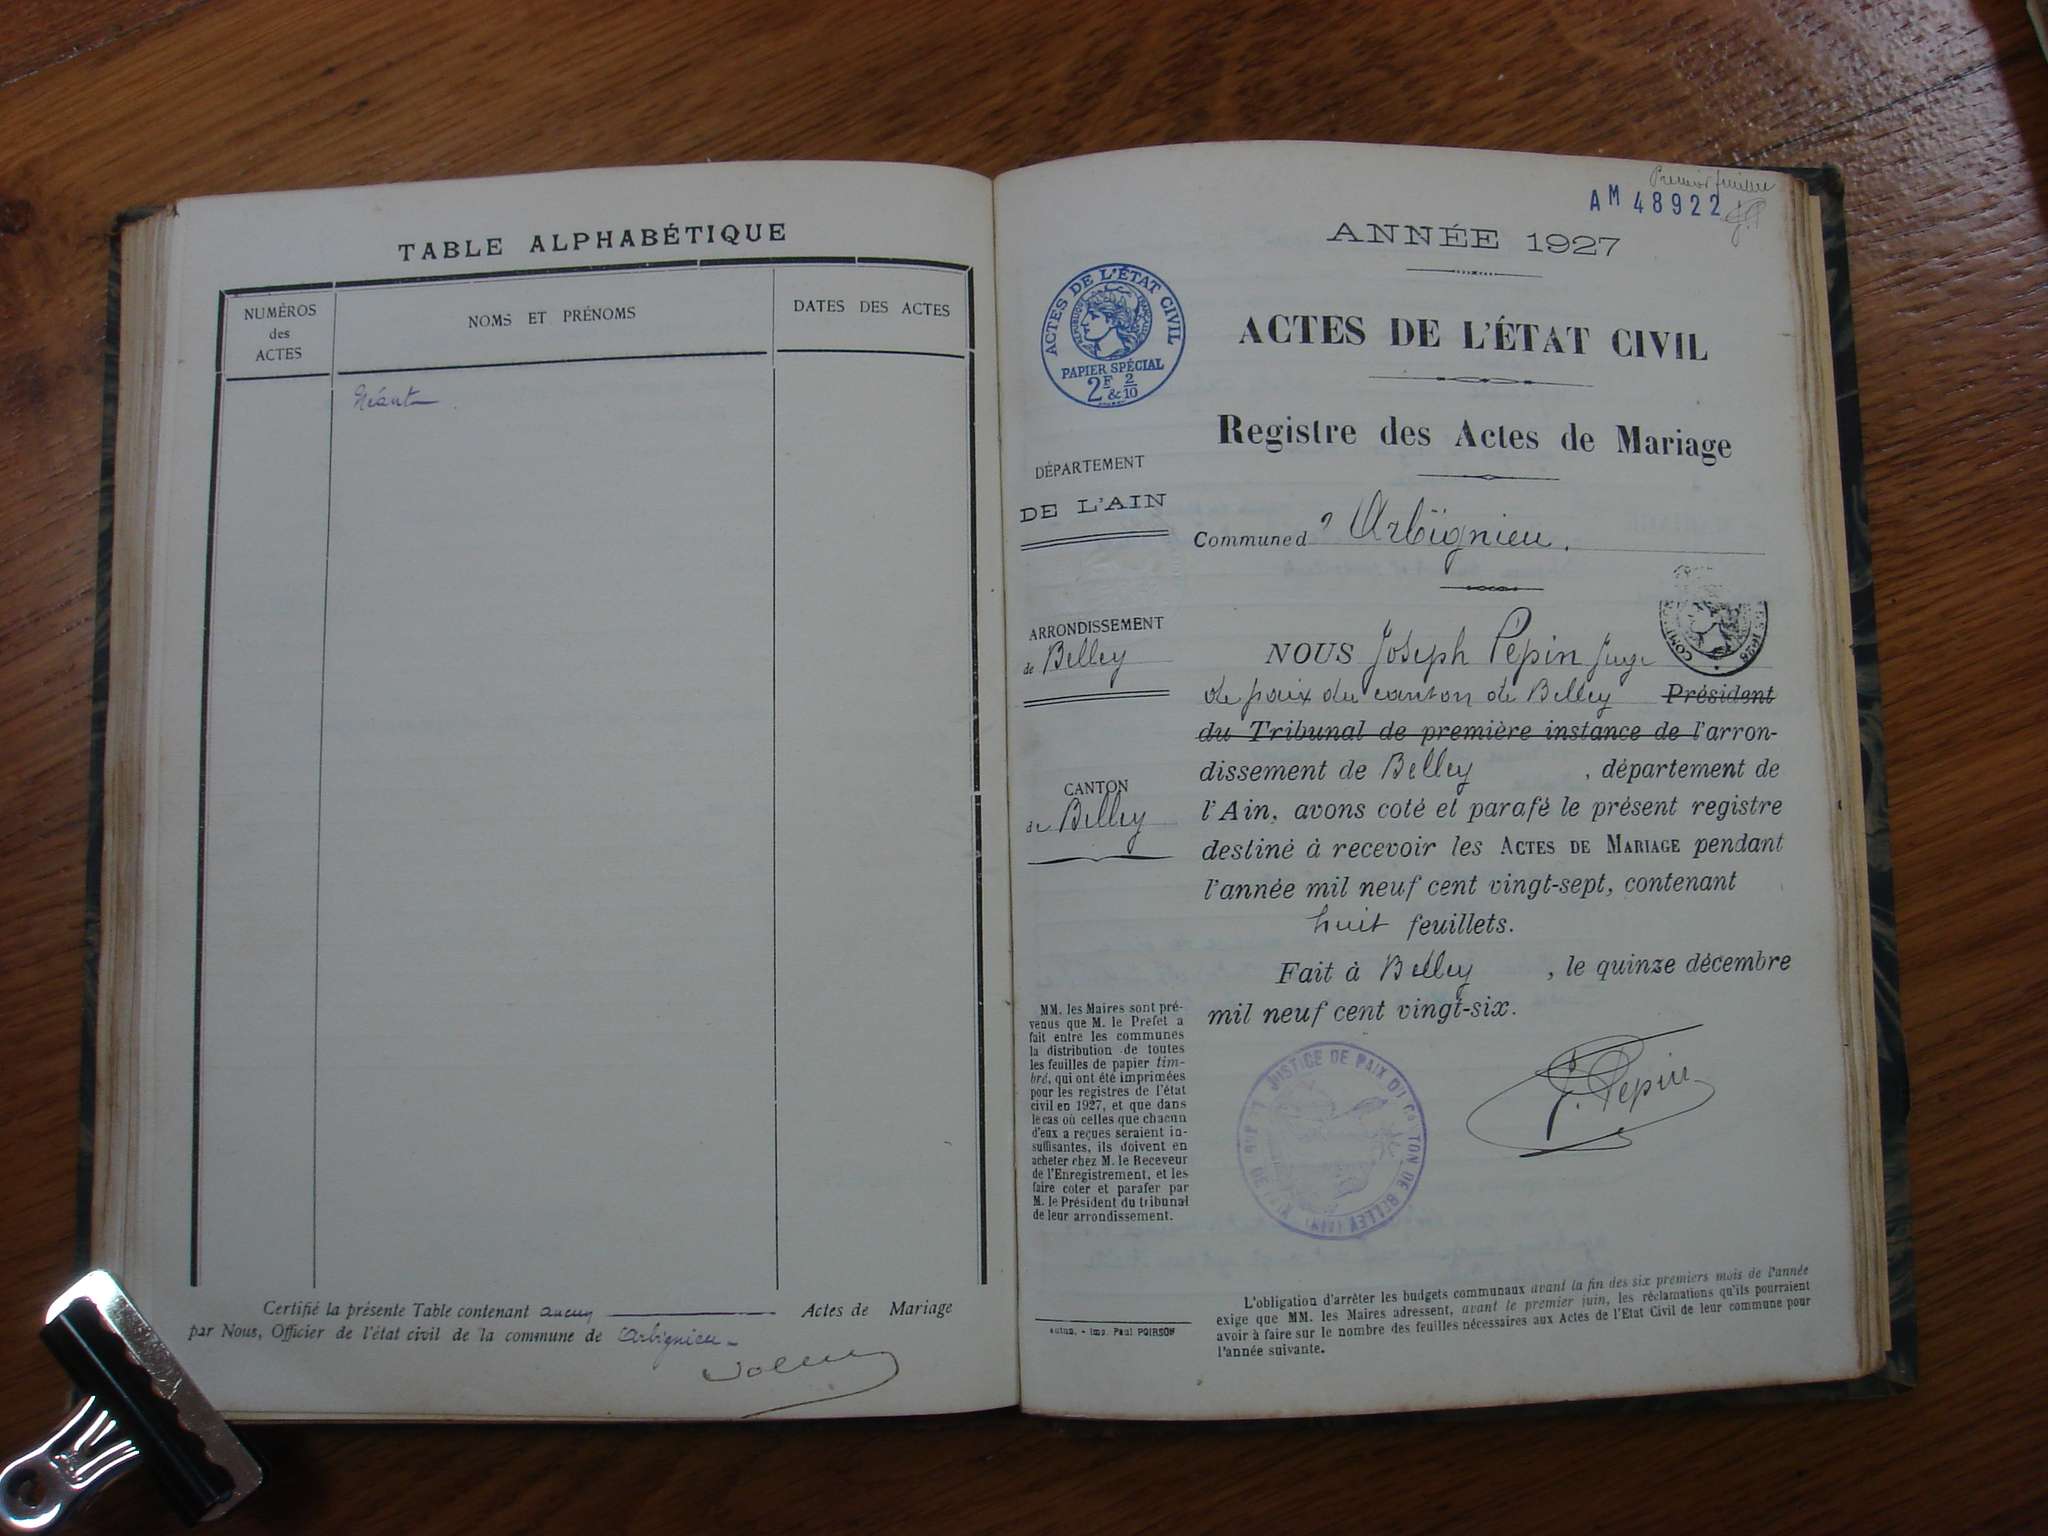 TABLE ALPHABÉTIQUE
NUMÉROS
des
ACTES
NOMS ET PRÉNOMS
DATES DES ACTES
Néant
Certifié la présente Table contenant aucun Actes de Mariage
par Nous, Officier de l'état civil de la commune de Arbignieu
Premier feuillet
AM 48922
ANNÉE 1927
ACTES DE L'ÉTAT CIVIL
RÉPUBLIQUE FRANÇAISE
PAPIER SPÉCIAL
2F & 2/10
ACTES DE L'ÉTAT CIVIL
Registre des Actes de Mariage
DÉPARTEMENT
DE L'AIN
Commune d'Arbignieu.
ARRONDISSEMENT
de Belley
CANTON
de Belley
NOUS Joseph Pépin Juge
de paix du canton de Belley Président
du Tribunal de première instance de l'arron-
dissement de Belley, département de
l'Ain, avons coté et parafé le présent registre
destiné à recevoir les ACTES DE MARIAGE pendant
l'année mil neuf cent vingt-sept, contenant
huit feuillets.
Fait à Belley, le quinze décembre
mil neuf cent vingt-six.
J. Pépin
JUSTICE DE PAIX DU CANTON DE BELLEY (AIN)
MM. les Maires sont pré-
venus que M. le Préfet a
fait entre les communes
la distribution de toutes
les feuilles de papier tim-
bré, qui ont été imprimées
pour les registres de l'état
civil en 1927, et que dans
le cas où celles que chacun
d'eux a reçues seraient in-
suffisantes, ils doivent en
acheter chez M. le Receveur
de l'Enregistrement, et les
faire coter et parafer par
M. le Président du tribunal
de leur arrondissement.
Imp. Paul POIRSON
L'obligation d'arrêter les budgets communaux avant la fin des six premiers mois de l'année
exige que MM. les Maires adressent, avant le premier juin, les réclamations qu'ils pourraient
avoir à faire sur le nombre des feuilles nécessaires aux Actes de l'Etat Civil de leur commune pour
l'année suivante.